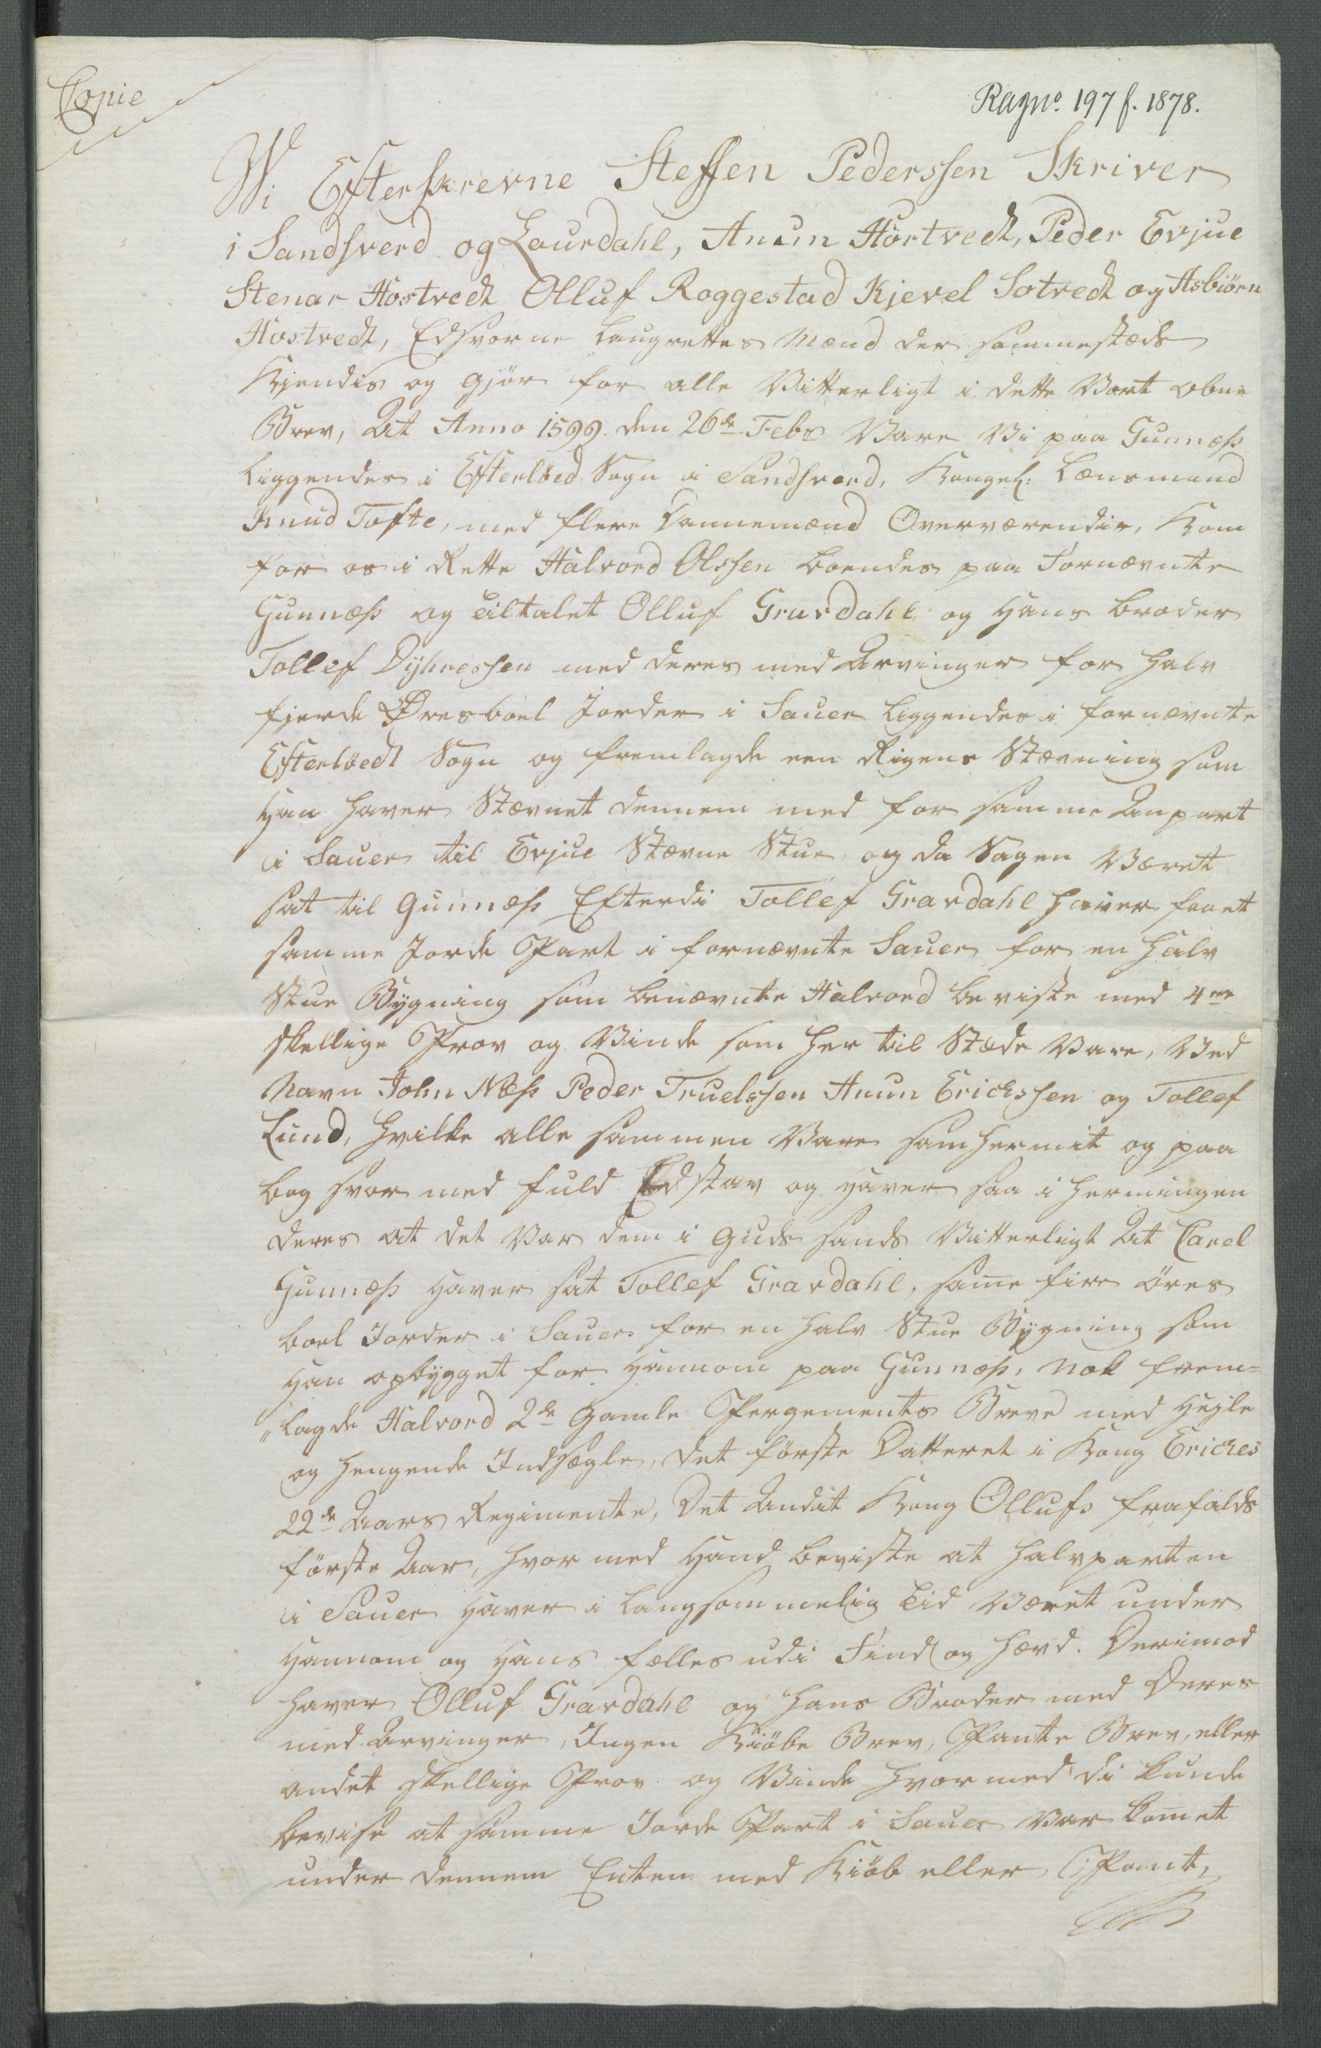 Copie
Ragno. 197 f. 1878.
Wi Efterskrevne Steffen Pederssen Skriver
i Sandsverd og Laurdahl, Anun Hørtvedt, Peder Evjue
Stenar Hostvedt Olluf Roggestad Kjevel Sotvedt og Asbiørn
Hostvedt, Edsvorne Laugrettes Mænd der sammestæds
Kjendis og gjør for alle Vitterligt i dette Vort obne
Brev, At Anno 1599 den 26de Febr Vare Vi paa Gunnæs
Liggendes i Efterløed Sogn i Sandsverd, Kongel: Lænsmand
Knud Tofte, med flere Dannemænd Overværendis, Kom
for os i Rette Halvord Olssen boendes paa Fornævnte
Gunnæs og tiltalet Olluf Gravdahl og Hans broder
Tollef Dyhressen med deres med Arvinger for halv
fjerde Øresboel Jorder i Sauer liggendes i fornævnte
Efterløedt Sogn og fremlagde een Rigens Stævning som
Han haver Stævnet dennem med for samme Anpart
i Sauer til Evjue Stævne Stue og da Sagen Været
sat til Gunnæs Efterdi Tollef Gravdahl haver faaet
samme Jorde Part i fornævnte Sauer for en halv
Stue Bygning som benævnte Halvord beviste med 4re
skellige Prov og Vinde som her til Stæde Vare, Ved
Navn John Næs Peder Truelssen Anun Erichssen og Tollef
Lund, hvilke alle sammen Vare samhermit og paa
bog svor med fuld Edstav og haver saa i hermingen
deres at det Var dem i Guds sands Vitterligt At Carel
Gunnæs haver sat Tollef Gravdahl, same fire øres
boel Jorder i Sauer for en halv Stue Bygning som
Han opbygget for hannom paa Gunnæs, Nok frem=
"lagde Halvord 2de Gamle Pergements Breve med hejle
og hengende Indsægle, det første Datteret i Kong Eriches
22de Aars Regimente, Det Andet Kong Ollufs frafalds
første Aar, hvor med Hand beviste at halvparten
i Sauer haver i langsommelig tid Været under
hannom og hans fælles udi Find og hævd. Derimod
haver Olluf Gravdahl og hans Broder med Deres
med Arvinger, Ingen Kiøbe Brev, Pante Brev, eller
andet skellige Prov og Vinde hvormed di kunde
bevise at samme Jorde Part i Sauer Var komet
under dennem Enten med Kiøb eller Pant,